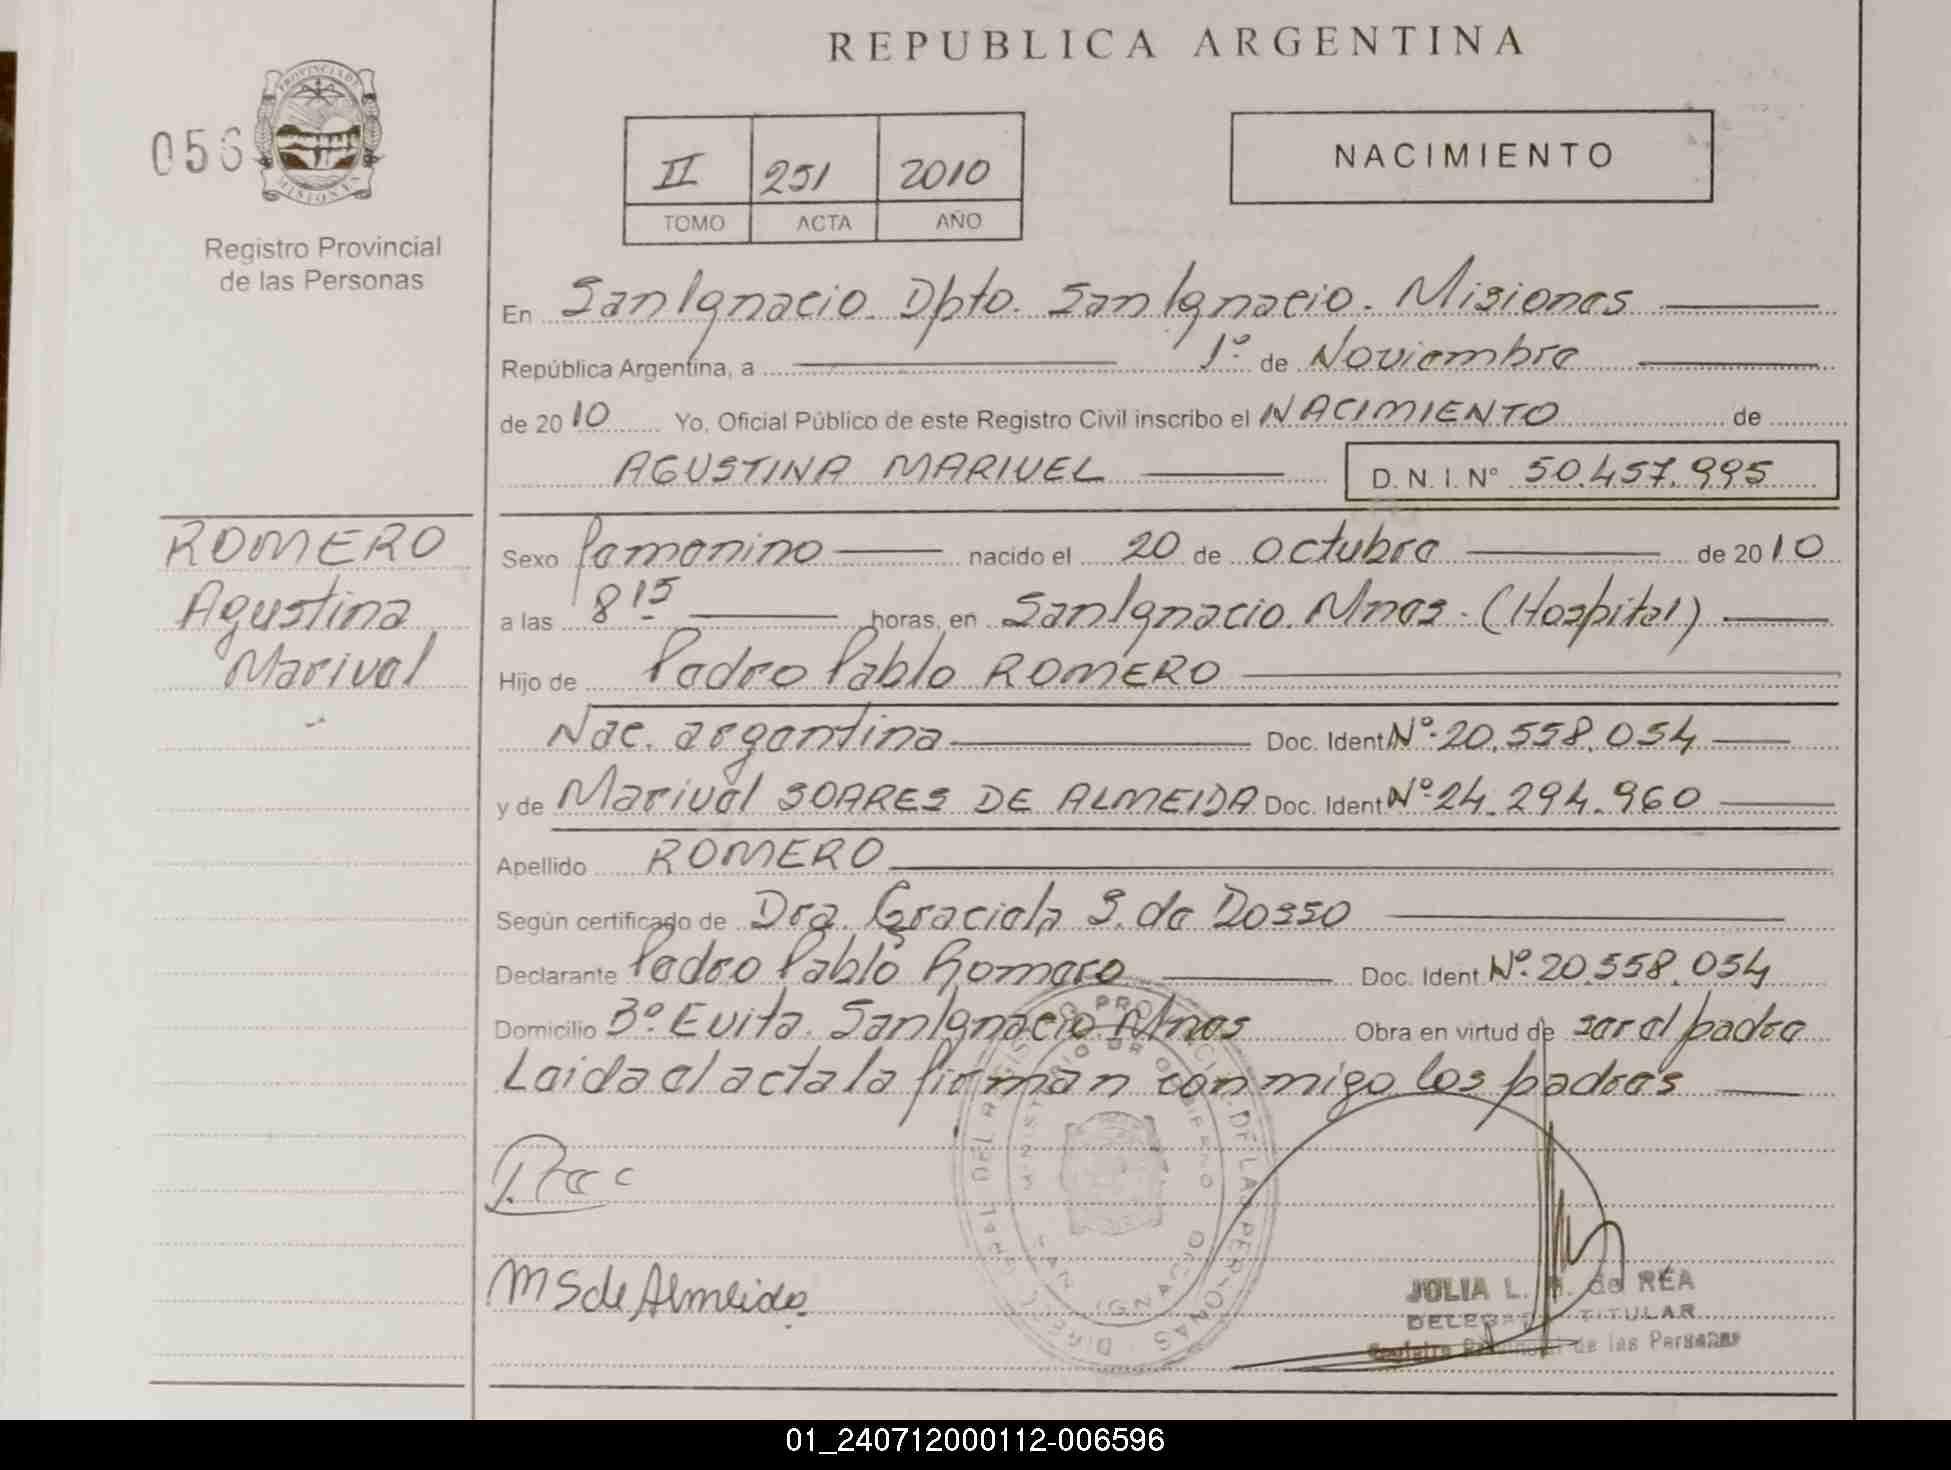 REPUBLICA ARGENTINA
056
PROVINCIA DE
MISIONES
Registro Provincial
de las Personas
II 251 2010
TOMO ACTA AÑO
NACIMIENTO
En San Ignacio. Dpto. San Ignacio. Misiones
República Argentina, a 1º de Noviembre
de 2010 Yo, Oficial Público de este Registro Civil inscribo el NACIMIENTO de
AGUSTINA MARIVEL D. N. I. Nº 50.457.995
ROMERO
Agustina
Marivel
Sexo femenino nacido el 20 de octubre de 2010
a las 8 15 horas, en San Ignacio. Mnes. (Hospital)
Hijo de Pedro Pablo ROMERO
Nac. argentina Doc. Ident. Nº 20.558.054
y de Marivel SOARES DE ALMEIDA Doc. Ident Nº 24.294.960
Apellido ROMERO
Según certificado de Dra. Graciela S. de Dosso
Declarante Pedro Pablo Romero Doc. Ident. Nº 20.558.054
Domicilio Bº Evita. San Ignacio Mnes Obra en virtud de ser el padre
Leida el acta la firman conmigo los padres
MS de Almeida
SAN IGNACIO
JULIA L. de REA
DELEGADA TITULAR
Registro Provincial de las Personas
01_240712000112-006596